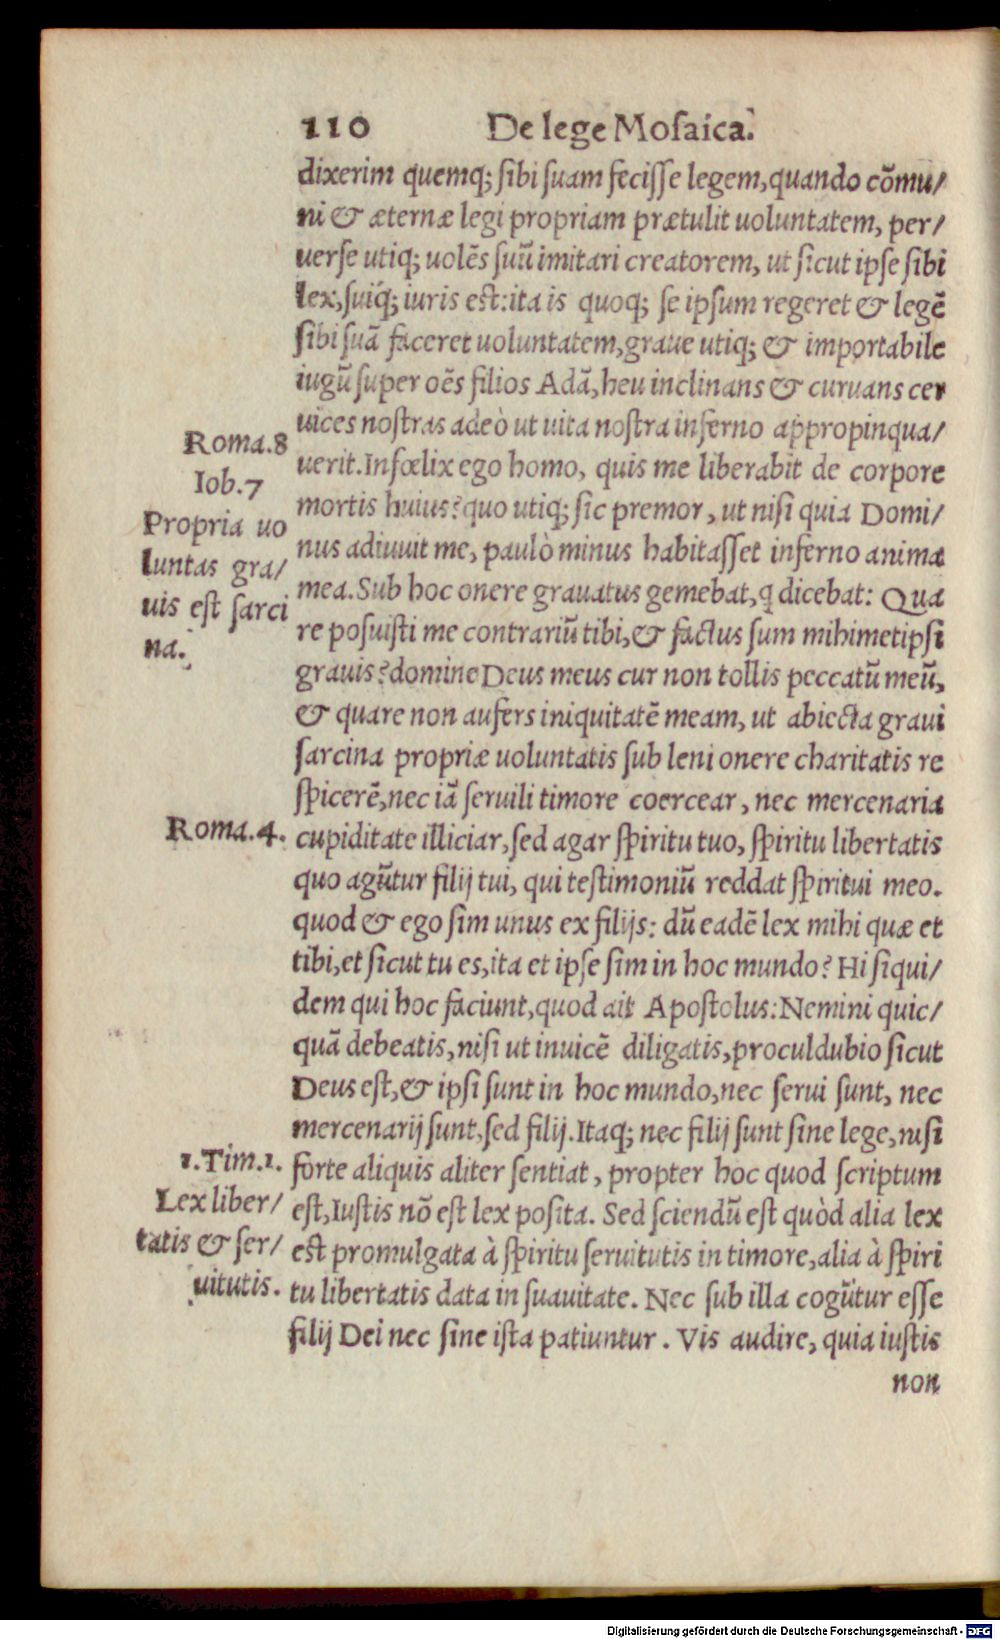 110 De lege Mosaica.
dixerim quemq; sibi suam fecisse legem, quando cõmu/
ni & æternæ legi propriam prætulit uoluntatem, per/
uerse utiq; uolẽs suũ imitari creatorem, ut sicut ipse sibi
lex, suiq́; iuris est: ita is quoq; se ipsum regeret & legẽ
sibi suã faceret uoluntatem, graue utiq; & importabile
iugũ super oẽs filios Adã, heu inclinans & curuans cer
uices nostras adeò ut uita nostra inferno appropinqua/
uerit. Infœlix ego homo, quis me liberabit de corpore
mortis huius? quo utiq; sic premor, ut nisi quia Domi/
nus adiuuit me, paulò minus habitasset inferno anima
mea. Sub hoc onere grauatus gemebat, q dicebat: Qua
re posuisti me contrariũ tibi, & factus sum mihimetipsi
grauis? domine Deus meus cur non tollis peccatũ meũ,
& quare non aufers iniquitatẽ meam, ut abiecta graui
sarcina propriæ uoluntatis sub leni onere charitatis re
spicerẽ, nec iã seruili timore coercear, nec mercenaria
cupiditate illiciar, sed agar spiritu tuo, spiritu libertatis
quo agũtur filij tui, qui testimoniũ reddat spiritui meo.
quod & ego sim unus ex filijs: dũ eadẽ lex mihi quæ et
tibi, et sicut tu es, ita et ipse sim in hoc mundo? Hi siqui/
dem qui hoc faciunt, quod ait Apostolus: Nemini quic/
quã debeatis, nisi ut inuicẽ diligatis, proculdubio sicut
Deus est, & ipsi sunt in hoc mundo, nec serui sunt, nec
mercenarij sunt, sed filij. Itaq; nec filij sunt sine lege, nisi
forte aliquis aliter sentiat, propter hoc quod scriptum
est, Iustis nõ est lex posita. Sed sciendũ est quòd alia lex
est promulgata à spiritu seruitutis in timore, alia à spiri
tu libertatis data in suauitate. Nec sub illa cogũtur esse
filij Dei nec sine ista patiuntur. Vis audire, quia iustis
non
Roma.8
Iob.7
Propria uo
luntas gra/
uis est sarci
na.
Roma.4.
1.Tim.1.
Lex liber/
tatis & ser/
uitutis.
Digitalisierung gefördert durch die Deutsche Forschungsgemeinschaft - DFG